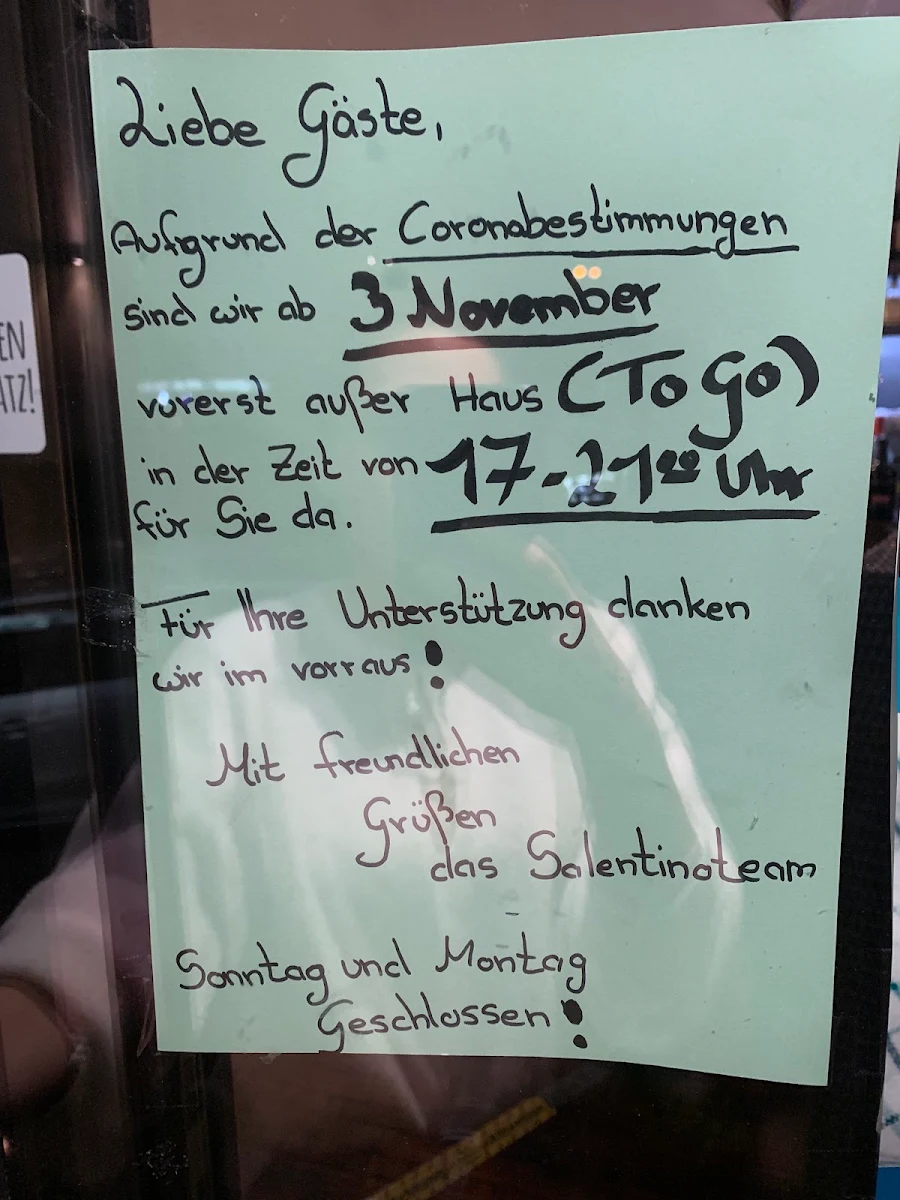 Liebe Gäste,
Aufgrund der Coronabestimmungen
sind wir ab 3 November
vorerst außer Haus (To Go)
in der Zeit von 17-21⁰⁰ Uhr
für Sie da.
Für Ihre Unterstützung danken
wir im vorraus!
Mit freundlichen
Grüßen
das Salentinoteam
Sonntag und Montag
Geschlossen!
EN
ATZ!